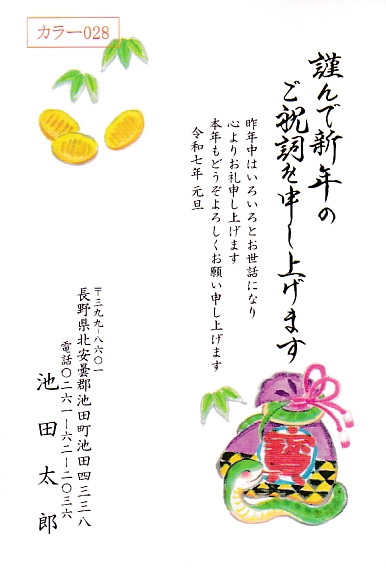 カラー028
謹んで新年の
ご祝詞を申し上げます
昨年中はいろいろとお世話になり
心よりお礼申し上げます
本年もどうぞよろしくお願い申し上げます
令和七年 元旦
〒三九九-八六〇一
長野県北安曇郡池田町池田四三三八
電話〇二六一-六二-二〇三六
池田太郎
寳